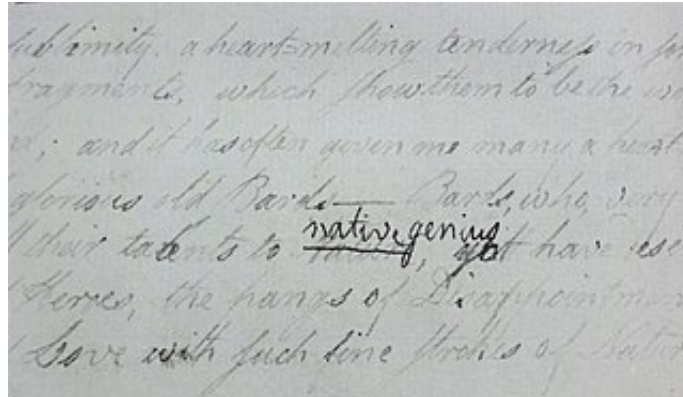 sublimity, a heart-melting tenderness in
fragments, which show them to be the
; and it has often given me many a heart
glorious old Bards— Bards, who, very
native genius
their talents to native, yet have
Heroes, the pangs of Disappointmen
Love with such fine strokes of Natur